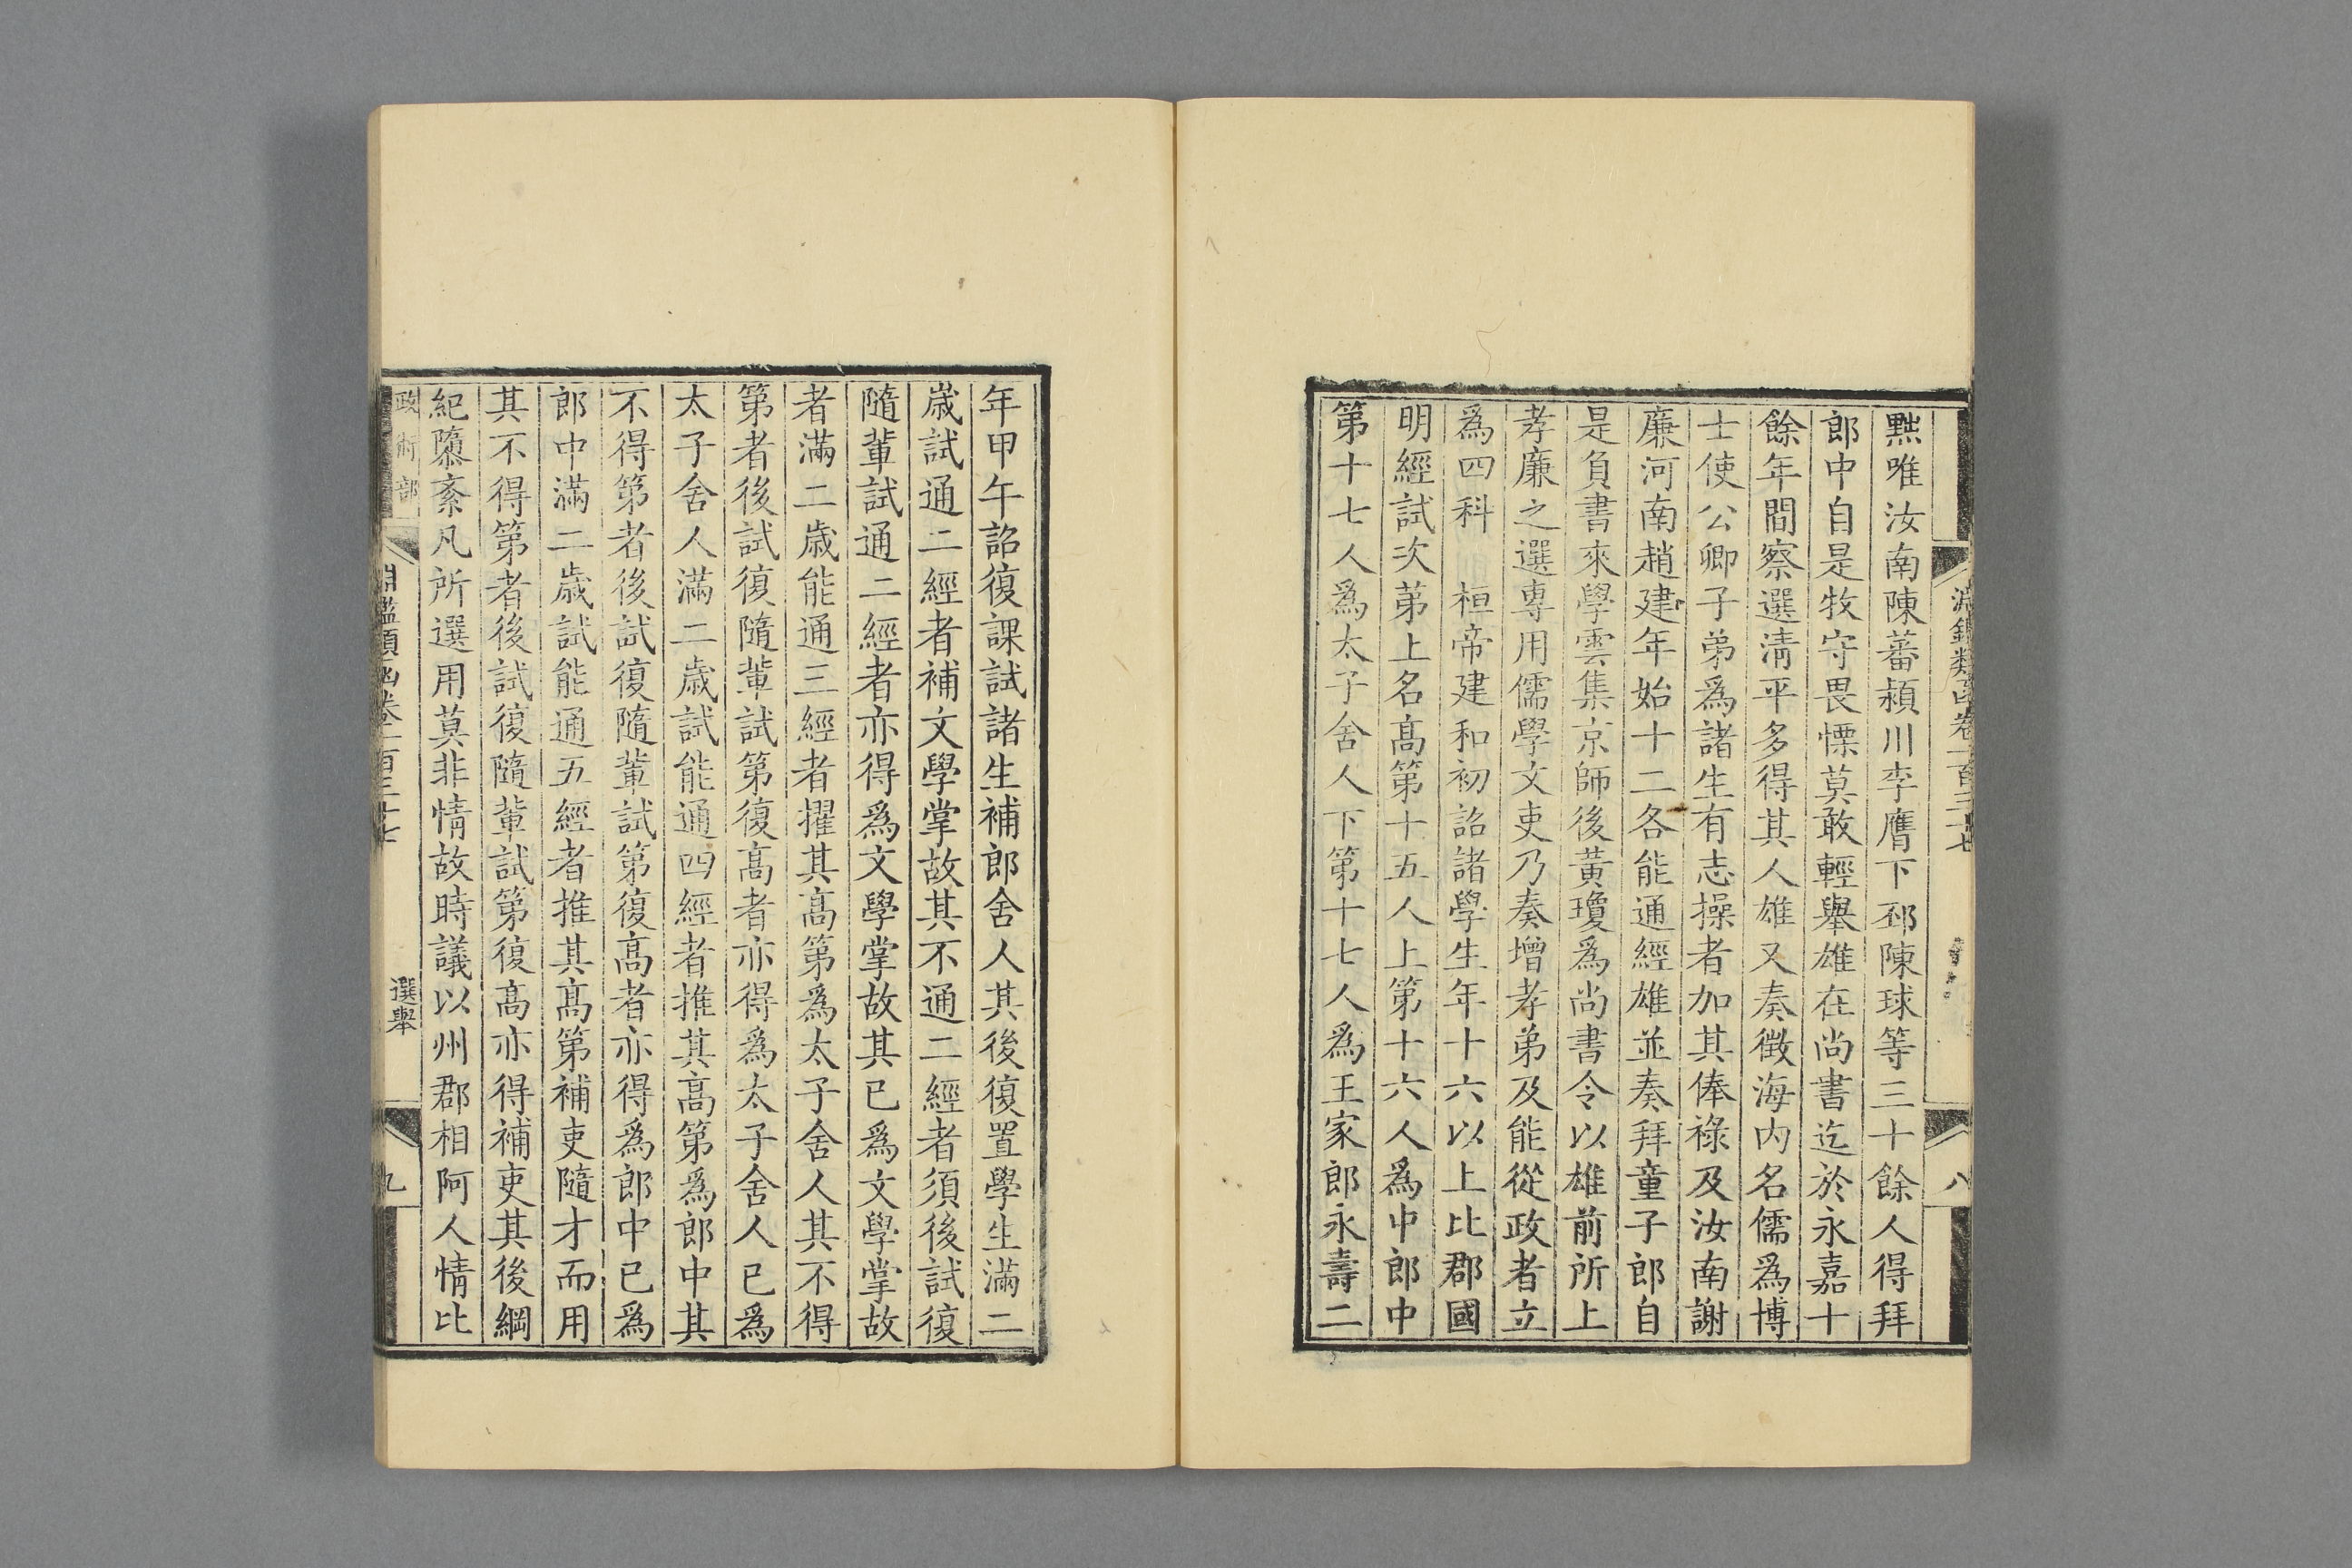 淵鑑類函卷一百三十七
八
黜唯汝南陳蕃潁川李膺下邳陳球等三十餘人得拜
郎中自是牧守畏慄莫敢輕舉雄在尚書迄於永嘉十
餘年間察選淸平多得其人雄又奏徵海內名儒爲博
士使公卿子弟爲諸生有志操者加其俸祿及汝南謝
廉河南趙建年始十二各能通經雄並奏拜童子郎自
是負書來學雲集京師後黃瓊爲尚書令以雄前所上
孝廉之選專用儒學文吏乃奏增孝弟及能從政者立
爲四科 桓帝建和初詔諸學生年十六以上比郡國
明經試次第上名高第十五人上第十六人爲中郎中
第十七人爲太子舍人下第十七人爲王家郎永壽二
年甲午詔復課試諸生補郎舍人其後復置學生滿二
歲試通二經者補文學掌故其不通二經者須後試復
隨輩試通二經者亦得爲文學掌故其已爲文學掌故
者滿二歲能通三經者擢其高第爲太子舍人其不得
第者後試復隨輩試第復高者亦得爲太子舍人已爲
太子舍人滿二歲試能通四經者推其高第爲郎中其
不得第者後試復隨輩試第復高者亦得爲郎中已爲
郎中滿二歲試能通五經者推其高第補吏隨才而用
其不得第者後試復隨輩試第復高亦得補吏其後綱
紀隳紊凡所選用莫非情故時議以州郡相阿人情比
政術部
淵鑑類函卷一百三十七
選舉
九